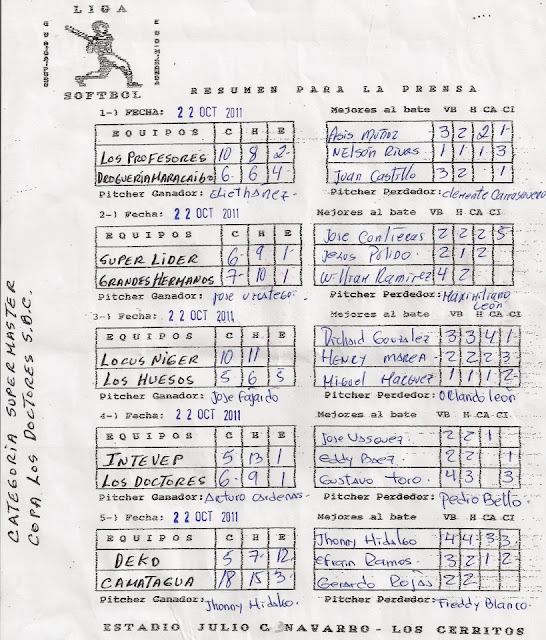 LIGA
SOFTBOL
RESUMEN PARA LA PRENSA
CATEGORIA SUPER MASTER
COPA LOS DOCTORES S.B.C.
1-) FECHA: 22 OCT 2011 Mejores al bate VB H CA CI
EQUIPOS C H E
Asis Muñoz 3 2 2 1
LOS PROFESORES 10 8 2 Nelson Rivas 1 1 1 3
DROGUERIA MARACAIBO 6 6 4 Juan Castillo 3 2 1
Pitcher Ganador: Pitcher Perdedor: Clemente Carrasquero
2-) Fecha: 22 OCT 2011 Mejores al bate VB H CA CI
EQUIPOS C H E Jose Contreras 2 2 2 5
SUPER LIDER 6 9 1 Jesus Pulido 2 1 2
GRANDES HERMANOS 7 10 1 William Ramirez 4 2
Pitcher Ganador: Jose Pitcher Perdedor: Maximiliano León
3-) Fecha: 22 OCT 2011 Mejores al bate VB H CA CI
EQUIPOS C H E Richard Gonzalez 3 3 4 1
LOCUS NIGER 10 11 Henry Marea 2 2 2 3
LOS HUESOS 5 6 5 Miguel Marquez 1 1 1 2
Pitcher Ganador: Jose Fajardo Pitcher Perdedor: Orlando León
4-) Fecha: 22 OCT 2011 Mejores al bate VB H CA CI
EQUIPOS C H E Jose Vasquez 2 2 1
INTEVEP 5 13 1 Eddy Baez 2 2 1
LOS DOCTORES 6 9 1 Gustavo Toro 4 3 3
Pitcher Ganador: Arturo Cardenas. Pitcher Perdedor: Pedro Bello
5-) Fecha: 22 OCT 2011 Mejores al bate VB H CA CI
EQUIPOS C H E Jhonny Hidalgo 4 4 3 3
DEKO 5 7 12 Efrain Ramos 3 2 1 2
CAMATAGUA 18 15 3 Gerardo Rojas 2 2
Pitcher Ganador: Jhonny Hidalgo. Pitcher Perdedor: Freddy Blanco.
ESTADIO JULIO C. NAVARRO - LOS CERRITOS